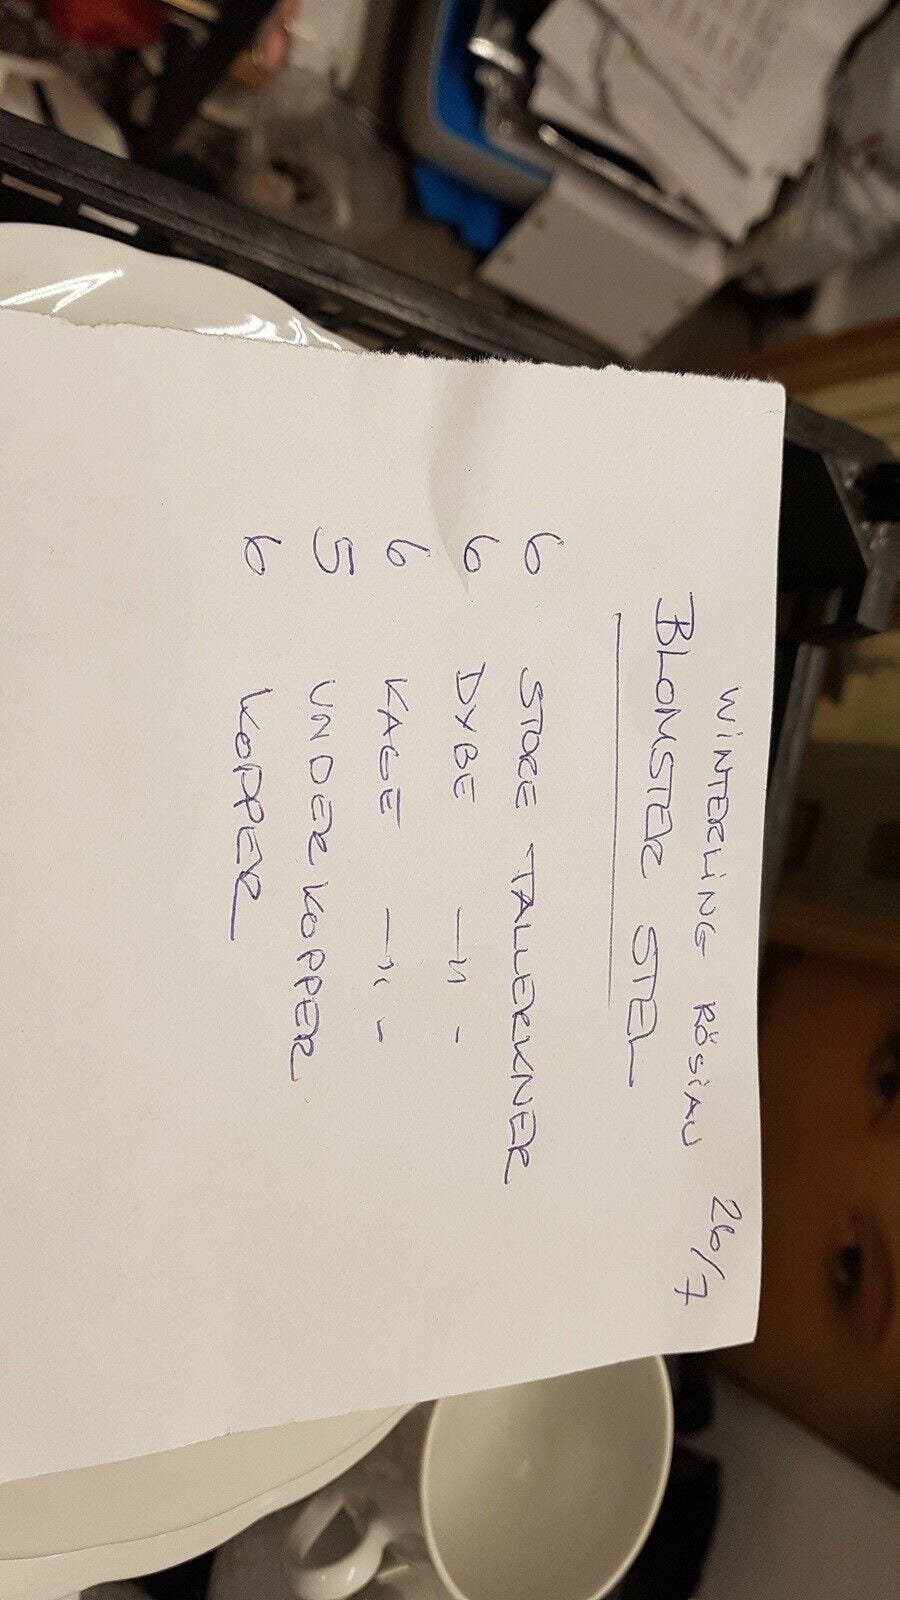 WINTERLING RÖSLAU 26/7
BLOMSTER STEL
6 STORE TALLERKNER
6 DYBE —ıı-
6 KAGE —ıı-
5 UNDERKOPPER
6 KOPPER